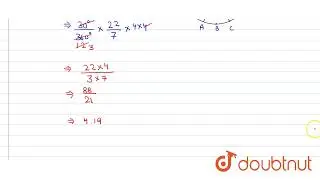 ⇒ 30° / 360° × 22 / 7 × 4×4
12 3
A B C
⇒ 22×4 / 3×7
⇒ 88 / 21
⇒ 4.19
doubtnut